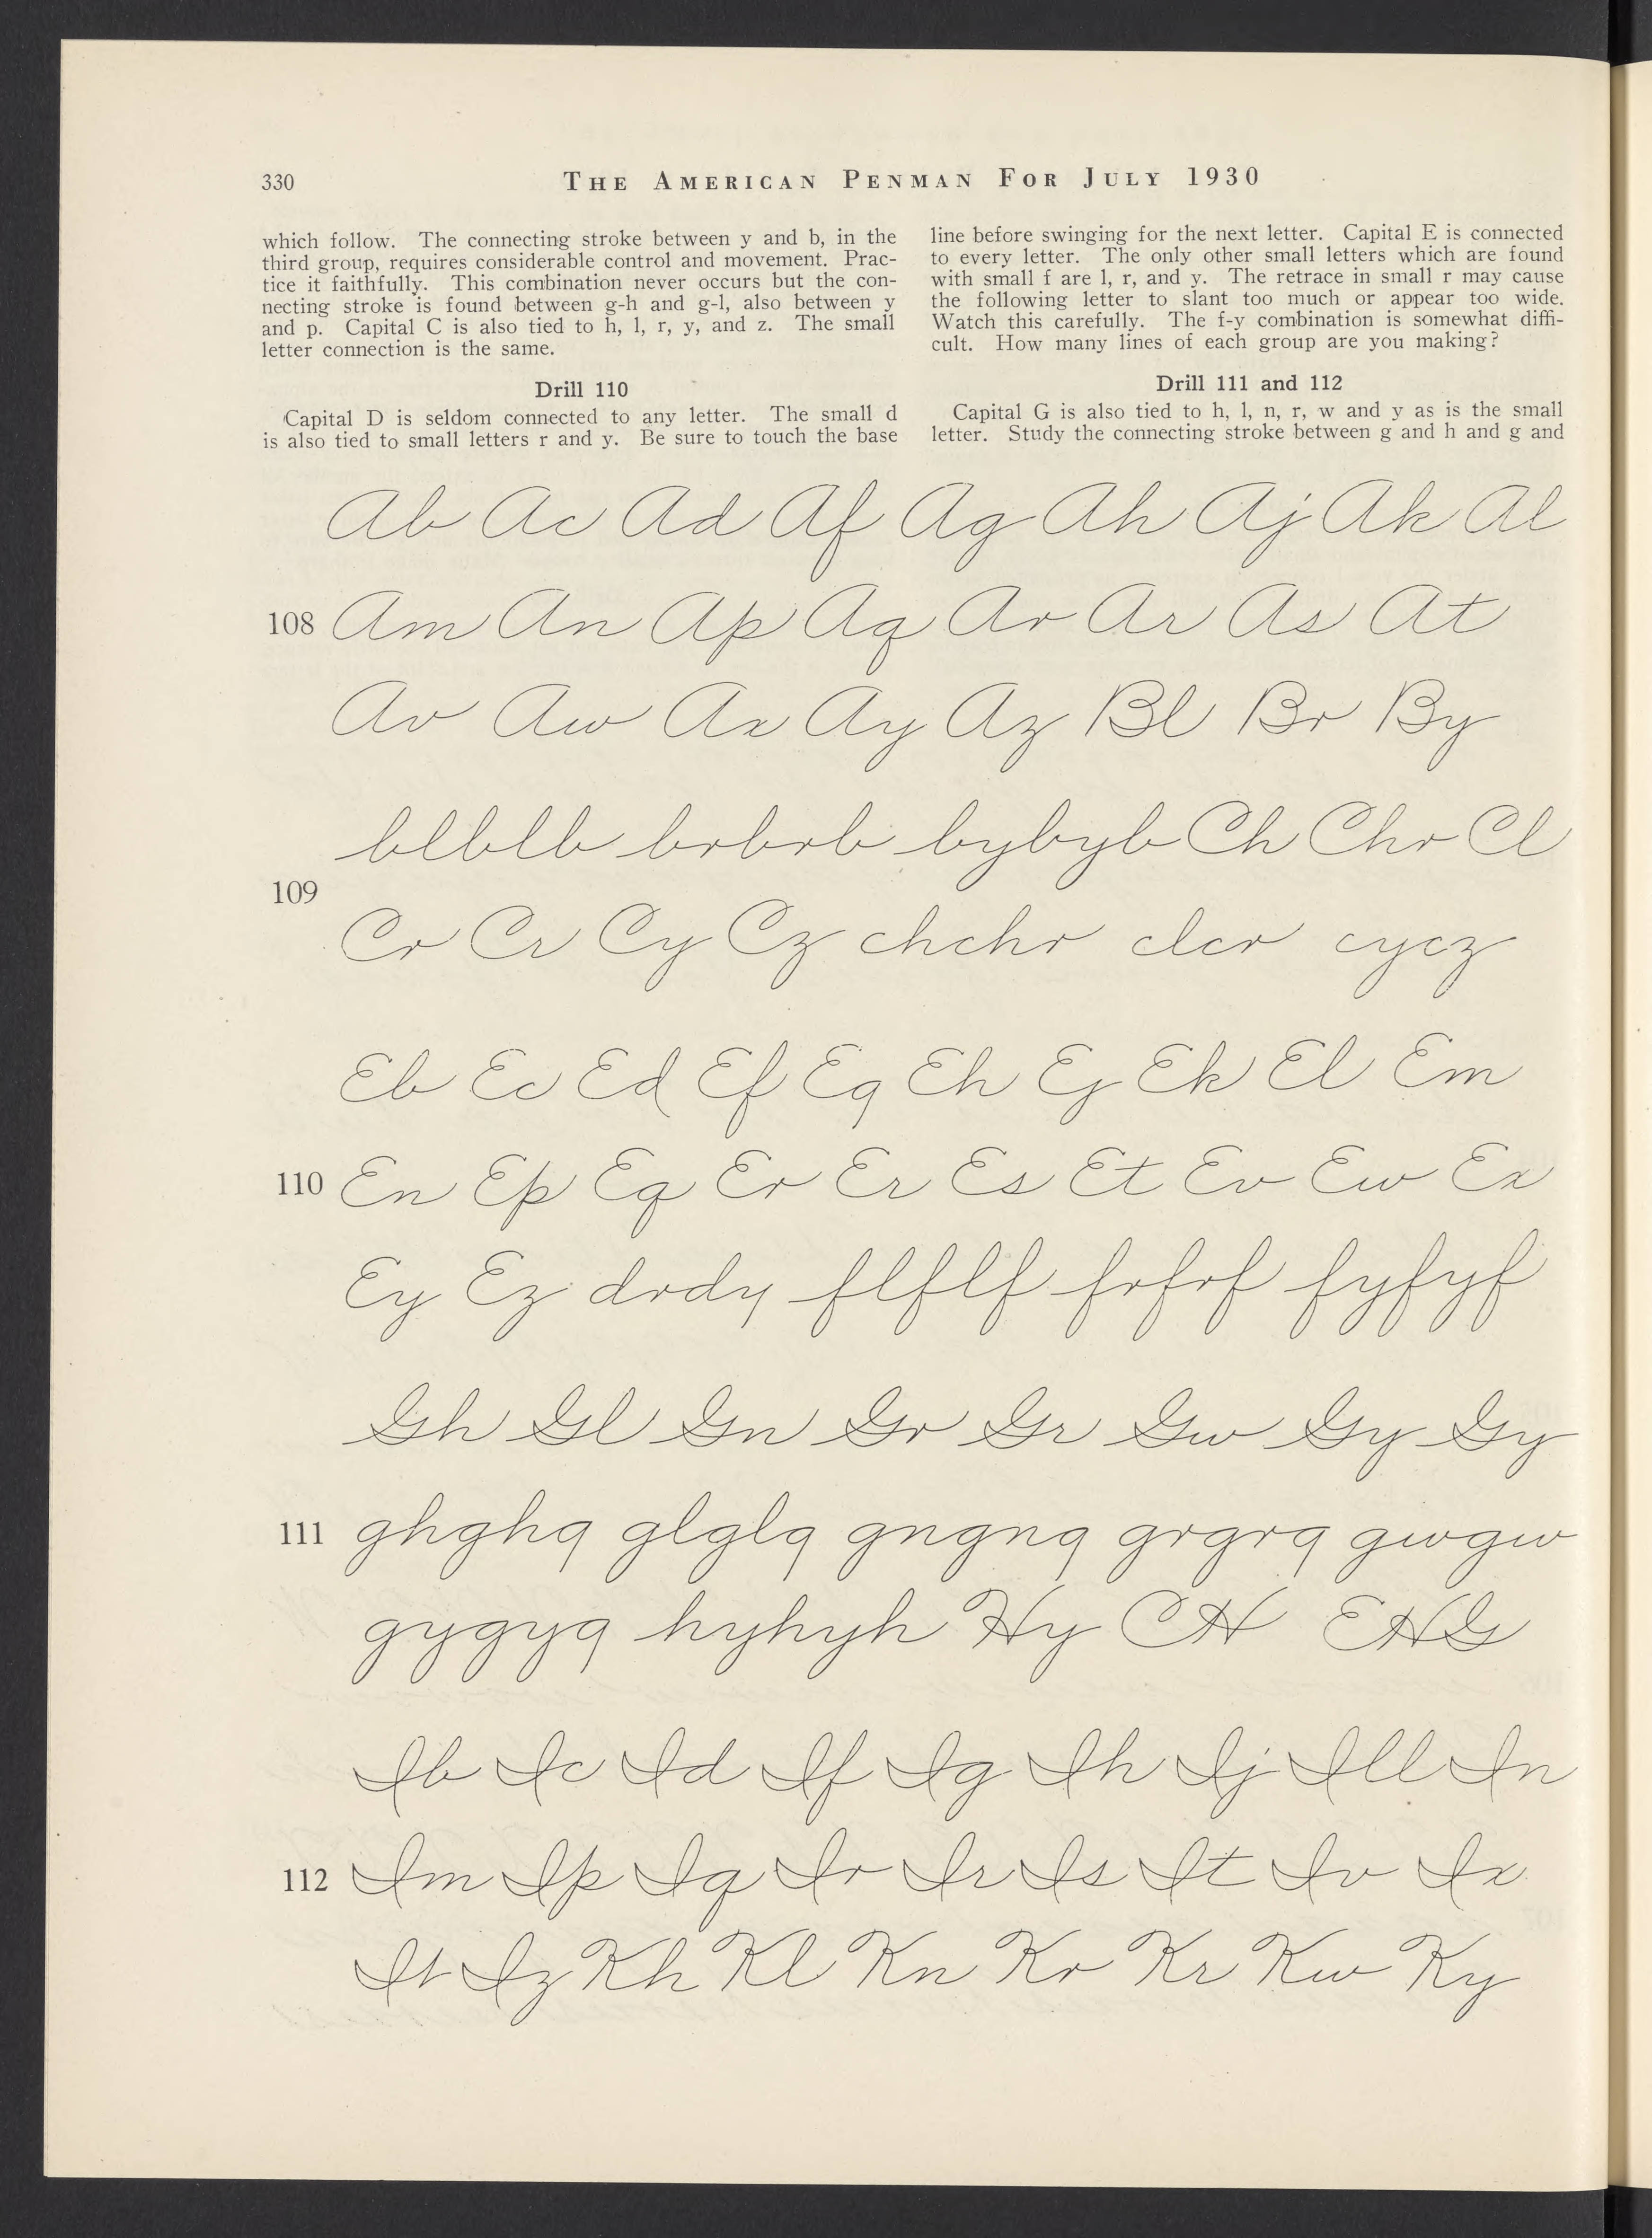 330
THE AMERICAN PENMAN FOR JULY 1930
which follow. The connecting stroke between y and b, in the
third group, requires considerable control and movement. Prac-
tice it faithfully. This combination never occurs but the con-
necting stroke is found between g-h and g-l, also between y
and p. Capital C is also tied to h, l, r, y, and z. The small
letter connection is the same.
Drill 110
Capital D is seldom connected to any letter. The small d
is also tied to small letters r and y. Be sure to touch the base
line before swinging for the next letter. Capital E is connected
to every letter. The only other small letters which are found
with small f are l, r, and y. The retrace in small r may cause
the following letter to slant too much or appear too wide.
Watch this carefully. The f-y combination is somewhat diffi-
cult. How many lines of each group are you making?
Drill 111 and 112
Capital G is also tied to h, l, n, r, w and y as is the small
letter. Study the connecting stroke between g and h and g and
Ab Ac Ad Af Ag Ah Aj Ak Al
108 Am An Ap Aq Ar Ar As At
Av Aw Ax Ay Az Bl Br By
blblb brbrb bybyb Ch Chr Cl
109
Cr Cr Cy Cz chchr clcr cycz
Eb Ec Ed Ef Eg Eh Ej Ek El Em
110 En Ep Eq Er Er Es Et Ev Ew Ex
Ey Ez drdy flflf frfrf fyfyf
Gh Gl Gn Gr Gr Gw Gy Gy
111 ghghg glglg gngng grgrg gwgw
gygyg hyhyh Hy CH EHG
Ib Ic Id If Ig Ih Ij Ill In
112 Im Ip Iq Ir Ir Is It Iv Ix
It Iz Kh Kl Kn Kr Kr Kw Ky